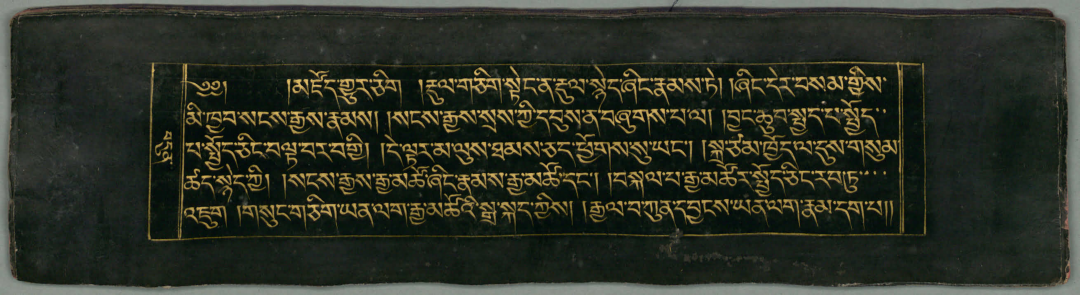 ༄༅། །མཛོད་གྱུར་ཅིག །རྡུལ་གཅིག་སྟེང་ན་རྡུལ་སྙེད་ཞིང་རྣམས་ཏེ། །ཞིང་དེར་བསམ་གྱིས་
མི་ཁྱབ་སངས་རྒྱས་རྣམས། །སངས་རྒྱས་སྲས་ཀྱི་དབུས་ན་བཞུགས་པ་ལ། །བྱང་ཆུབ་སྤྱད་པ་སྤྱོད་
པ་སྤྱོད་ཅིང་བལྟ་བར་བགྱི། །དེ་ལྟར་མ་ལུས་ཐམས་ཅད་ཕྱོགས་སུ་ཡང་། །སྐྲ་ཙམ་ཁྱོད་ལ་དུས་གསུམ་
ཚད་སྙེད་ཀྱི། །སངས་རྒྱས་རྒྱ་མཚོ་ཞིང་རྣམས་རྒྱ་མཚོ་དང་། །བསྐལ་པ་རྒྱ་མཚོར་སྤྱོད་ཅིང་རབ་ཏུ་
འཇུག །གསུང་གཅིག་ཡན་ལག་རྒྱ་མཚོའི་སྒྲ་སྐད་ཀྱིས། །རྒྱལ་བ་ཀུན་དབྱངས་ཡན་ལག་རྣམ་དག་པ།།